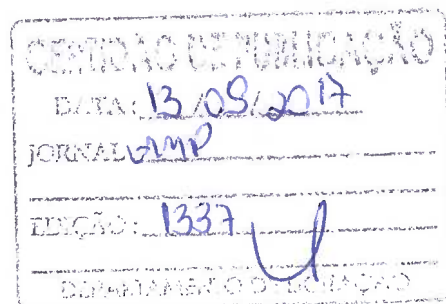 CERTIDÃO DE PUBLICAÇÃO
DATA: 13/09/2017
JORNAL: AMP
EDIÇÃO: 1337
DEPARTAMENTO DE LICITAÇÃO